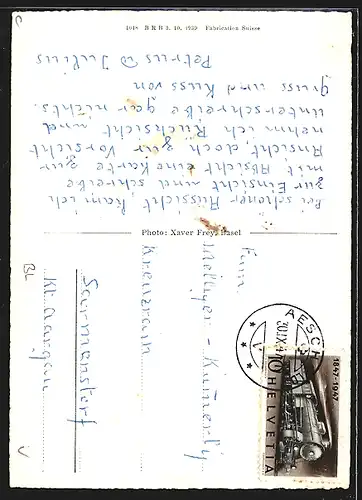 1018 BRB 3. 10. 1939 Fabrication Suisse
Bei schöner Aussicht, kam ich
zur Einsicht und schreibe
mit Absicht eine Karte zur
Ansicht, doch zur Vorsicht
nehm ich Rücksicht und
unterschreibe gar nichts.
Gruss und Kuss von
Petrus & Julius
Photo: Xaver Frey, Basel
Fam
Kreuzrain
Sarmenstorf
Kt. Aargau
BL
AESCH
30.IX.47
1847-1947
10 HELVETIA